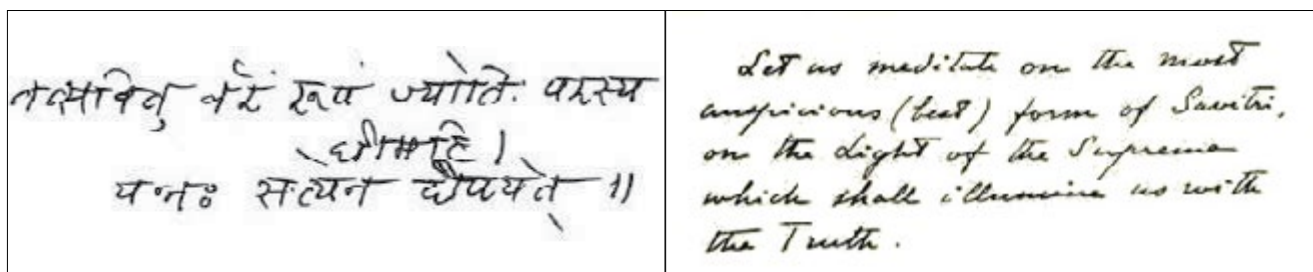 तत्सवितु र्वरं रूपं ज्योतिः परस्य
धीमहि ।
यन्नः सत्येन दीपयेत् ॥
Let us meditate on the most
auspicious (best) form of Savitri,
on the Light of the Supreme
which shall illumine us with
the Truth.